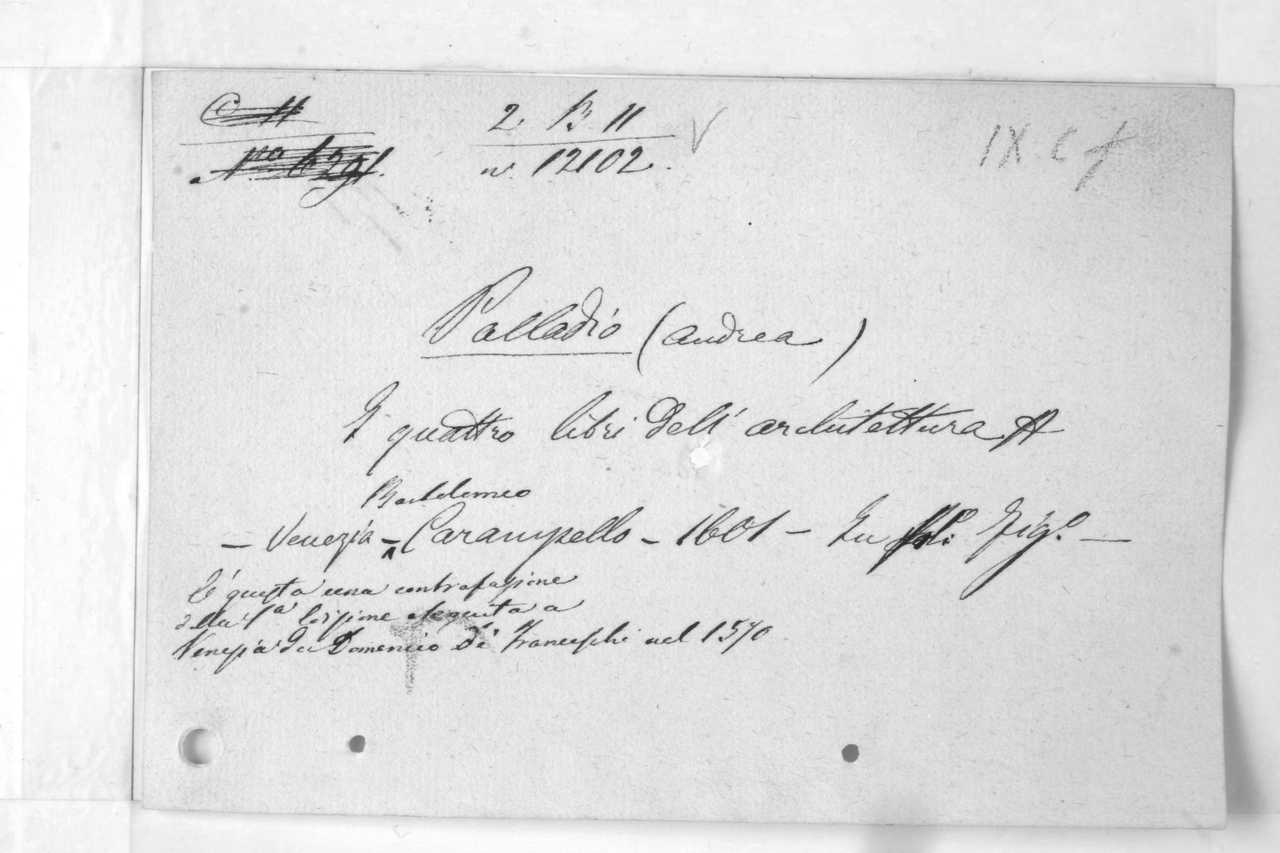 C H
N.ro 6291.
2. B. 11
n. 12102.
V
IX. C f
Palladio (Andrea)
I quattro libri dell' architettura
Bartolomeo
— Venezia — Carampello — 1601 — In fol.o Fig.o —
È questa una contrafazione
della 1a edizione eseguita a
Venezia da Domenico de' Franceschi nel 1570